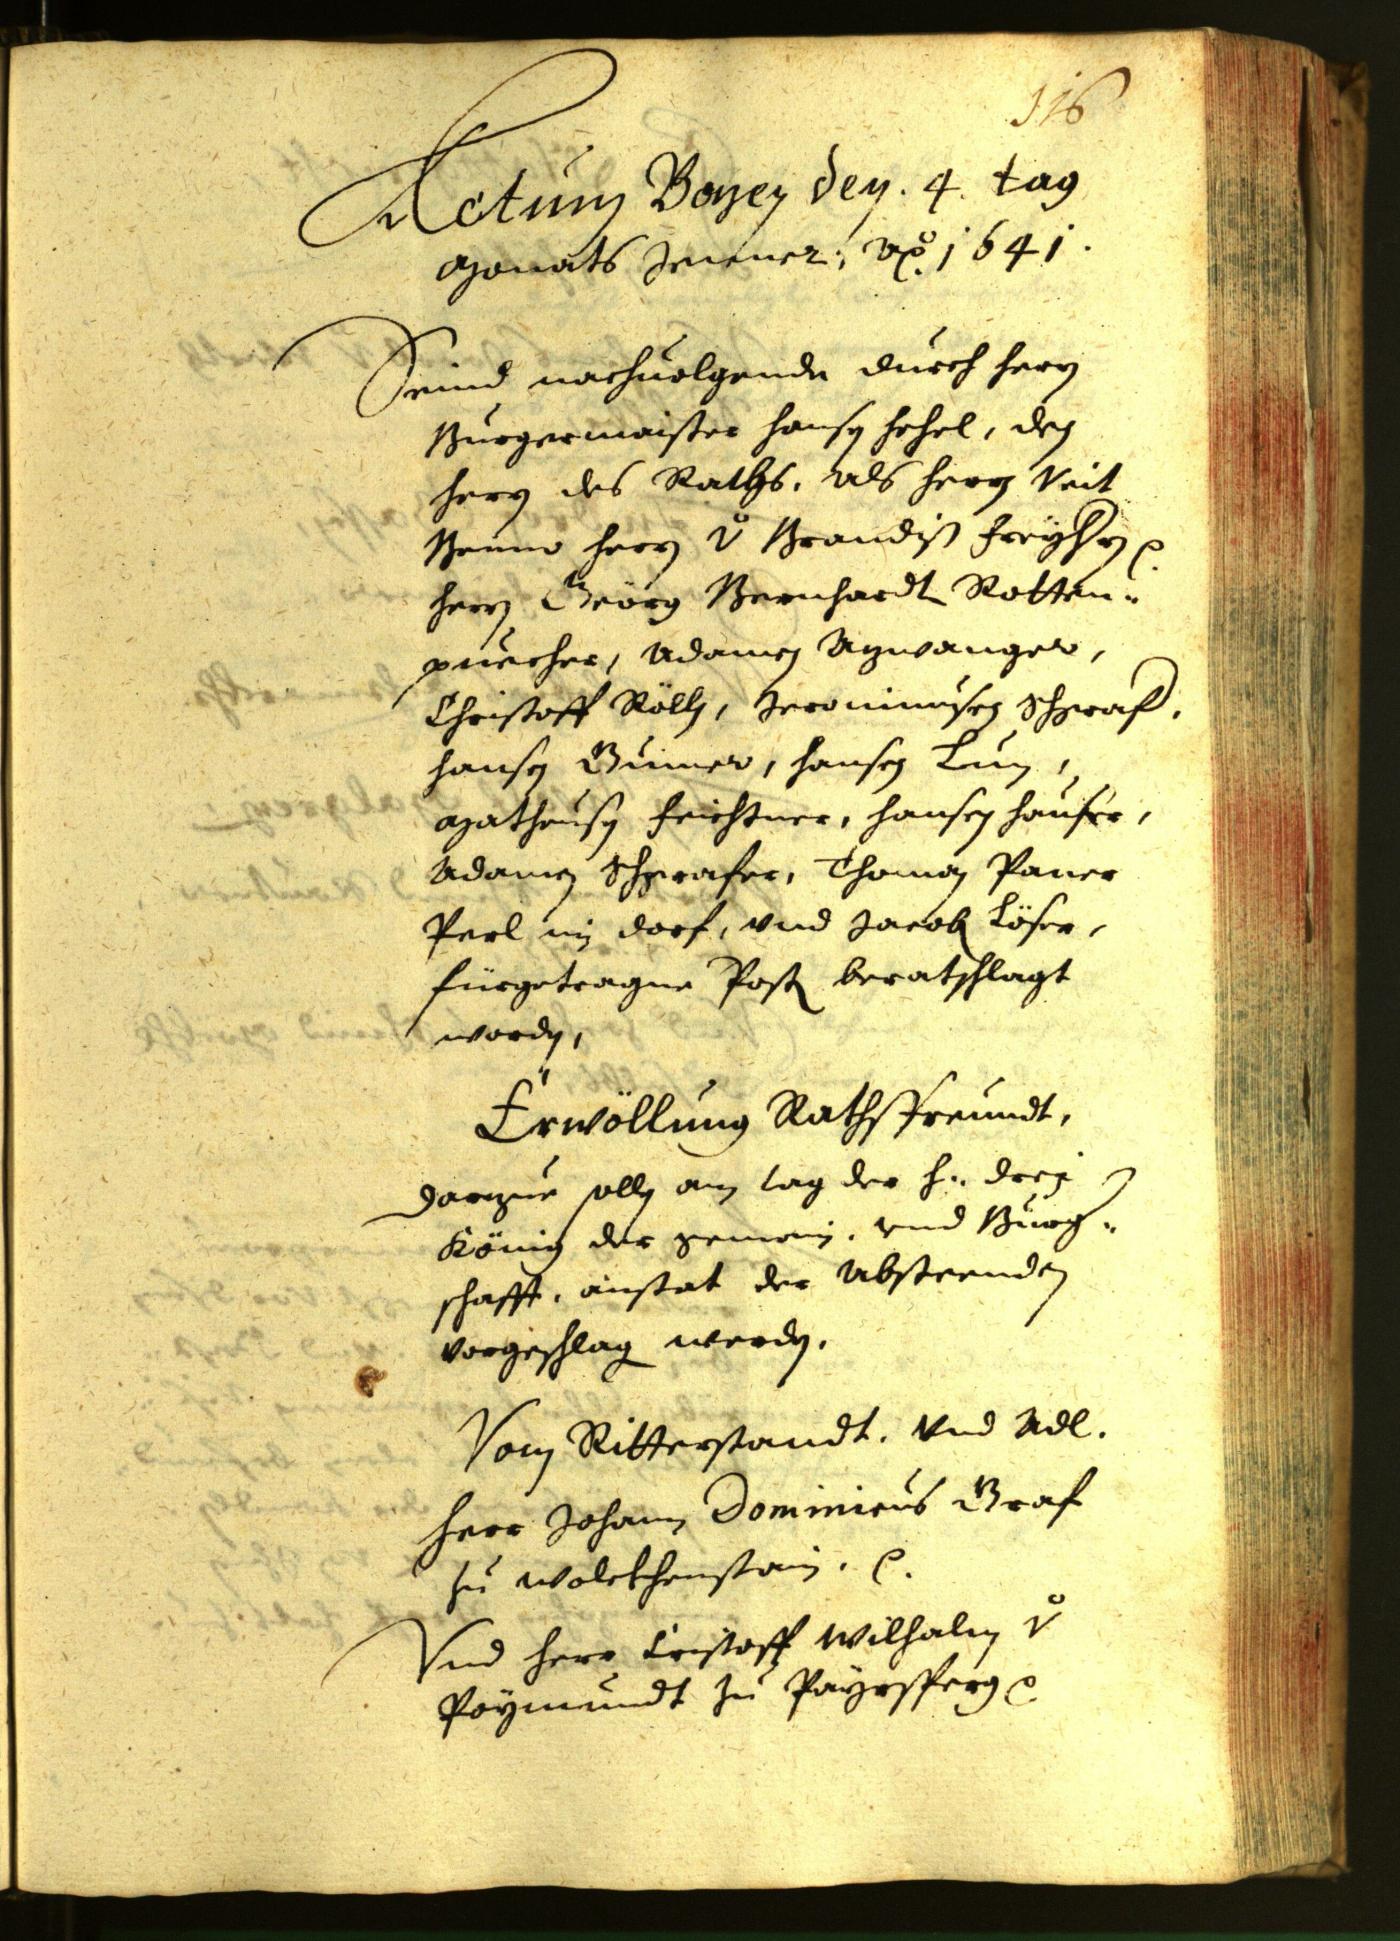 116
Actum Bozen den. 4. tag
Monats Jenner, Ao. 1641.
Seind nachuolgende durch herrn
Burgermaister hansen hehel, den
herrn des Raths, als herrn Veit
Benno herrn v Brandiß freyhrn
herrn Geörg Bernhardt Rotten-
puecher, Adamen Azwanger,
Christoff Rölln, Jeronimusen Schgraf,
hansen Gumer, hansen Lun,
Matheusen feichtner, hansen hauser,
Adamen Schgrafer, Thoman Paner
Perl im dorf, vnd Jacob Löser,
fürgetragne Post beratschlagt
worden,
Erwöllung Rathsfreundt,
Darzue sollen am tag der h: drey
König der gemain, vnd Burg-
schafft, anstat der Absteenden
vorgeschlag werden.
Vom Ritterstandt. vnd Adl.
herr Johann Dominicus Graf
zu wolckhenstain.
Vnd herr Cristoff Wilhalm v
Poymundt zu Payrsperg